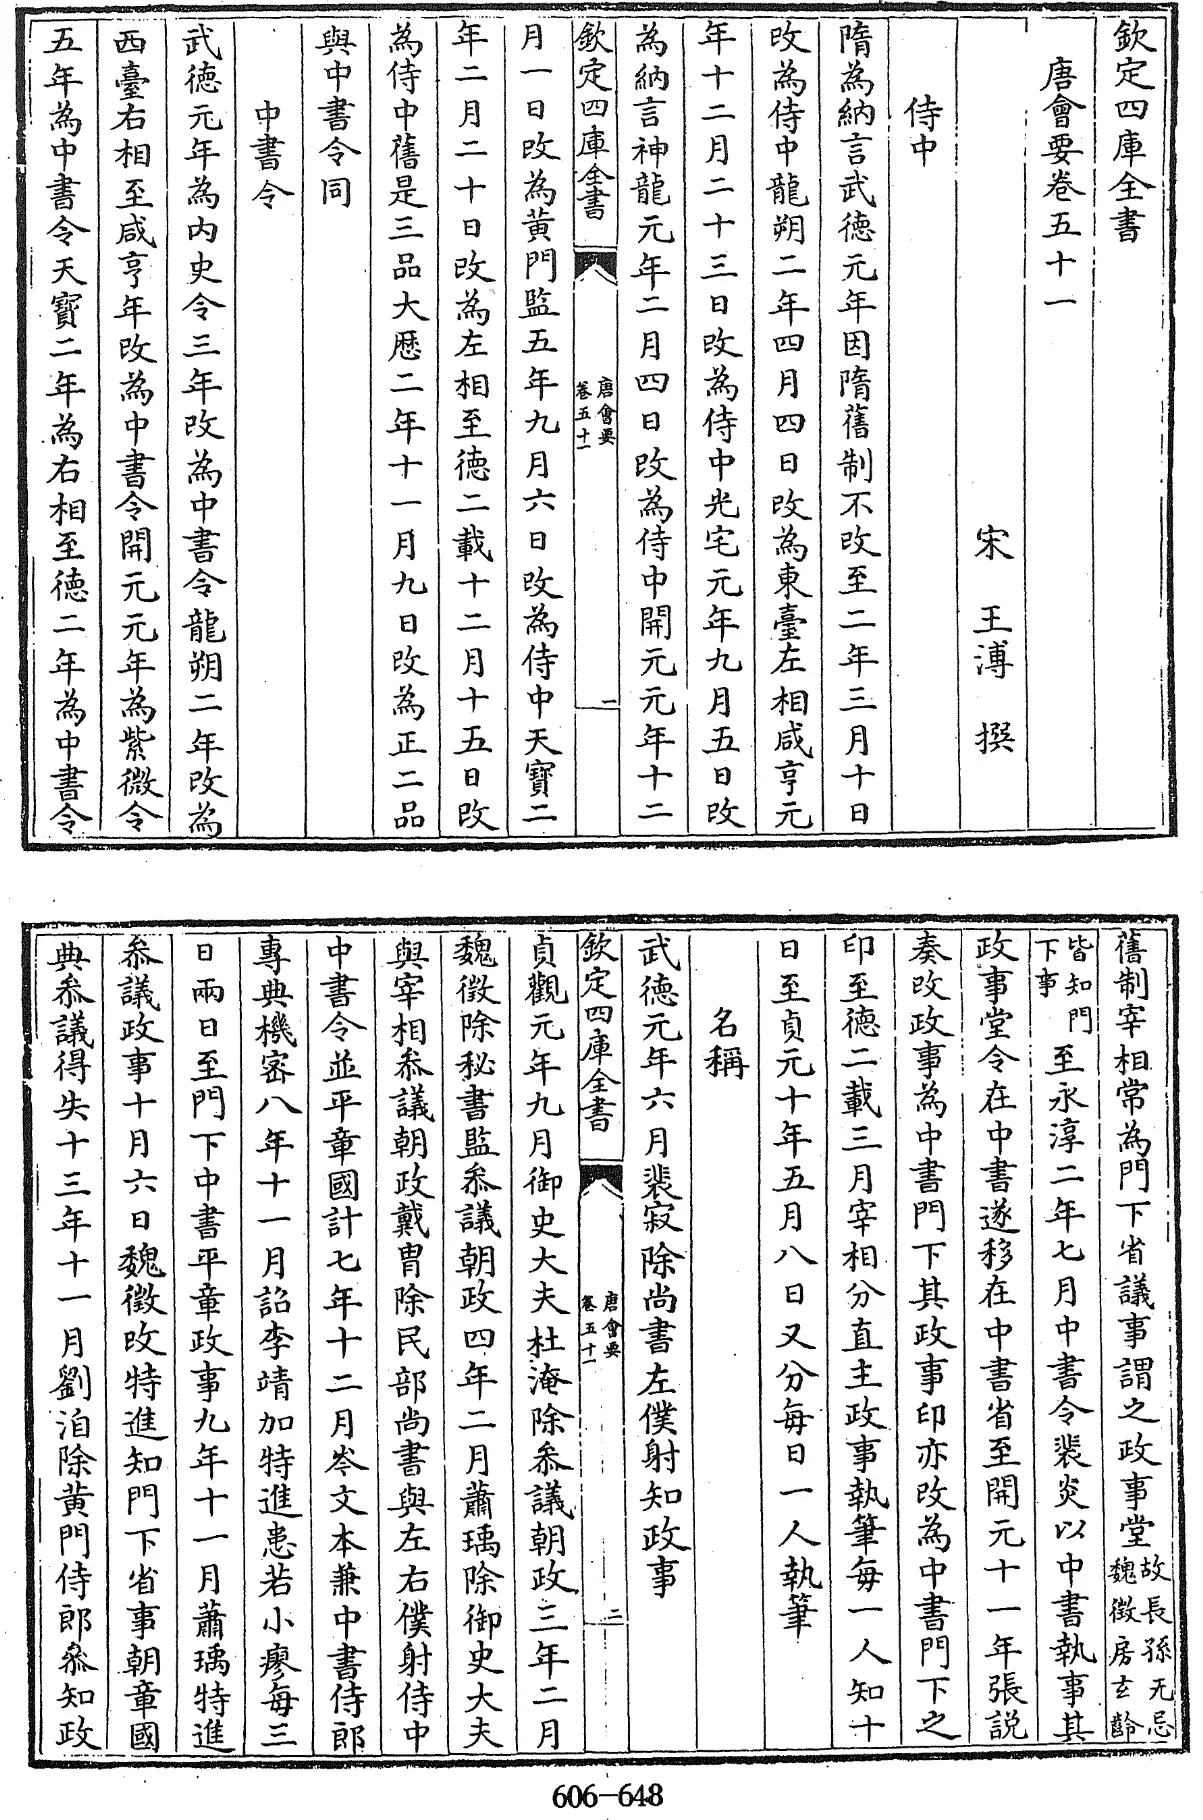 欽定四庫全書
唐會要卷五十一
宋 王溥 撰
侍中
隋為納言武德元年因隋舊制不改至二年三月十日
改為侍中龍朔二年四月四日改為東臺左相咸亨元
年十二月二十三日改為侍中光宅元年九月五日改
為納言神龍元年二月四日改為侍中開元元年十二
欽定四庫全書
唐會要
卷五十一
一
月一日改為黃門監五年九月六日改為侍中天寶二
年二月二十日改為左相至德二載十二月十五日改
為侍中舊是三品大厯二年十一月九日改為正二品
與中書令同
中書令
武徳元年為内史令三年改為中書令龍朔二年改為
西臺右相至咸亨年改為中書令開元元年為紫微令
五年為中書令天寶二年為右相至徳二年為中書令
舊制宰相常為門下省議事謂之政事堂故長孫无忌
魏徵房玄齡
皆知門
下事至永淳二年七月中書令裴炎以中書執事其
政事堂令在中書遂移在中書省至開元十一年張説
奏改政事為中書門下其政事印亦改為中書門下之
印至徳二載三月宰相分直主政事執筆每一人知十
日至貞元十年五月八日又分每日一人執筆
名稱
武徳元年六月裴寂除尚書左僕射知政事
欽定四庫全書
唐會要
卷五十一
二
貞觀元年九月御史大夫杜淹除叅議朝政三年二月
魏徵除秘書監叅議朝政四年二月蕭瑀除御史大夫
與宰相叅議朝政戴胄除民部尚書與左右僕射侍中
中書令並平章國計七年十二月岑文本兼中書侍郎
專典機密八年十一月詔李靖加特進患若小瘳每三
日兩日至門下中書平章政事九年十一月蕭瑀特進
叅議政事十月六日魏徵改特進知門下省事朝章國
典叅議得失十三年十一月劉洎除黃門侍郎叅知政
606-648